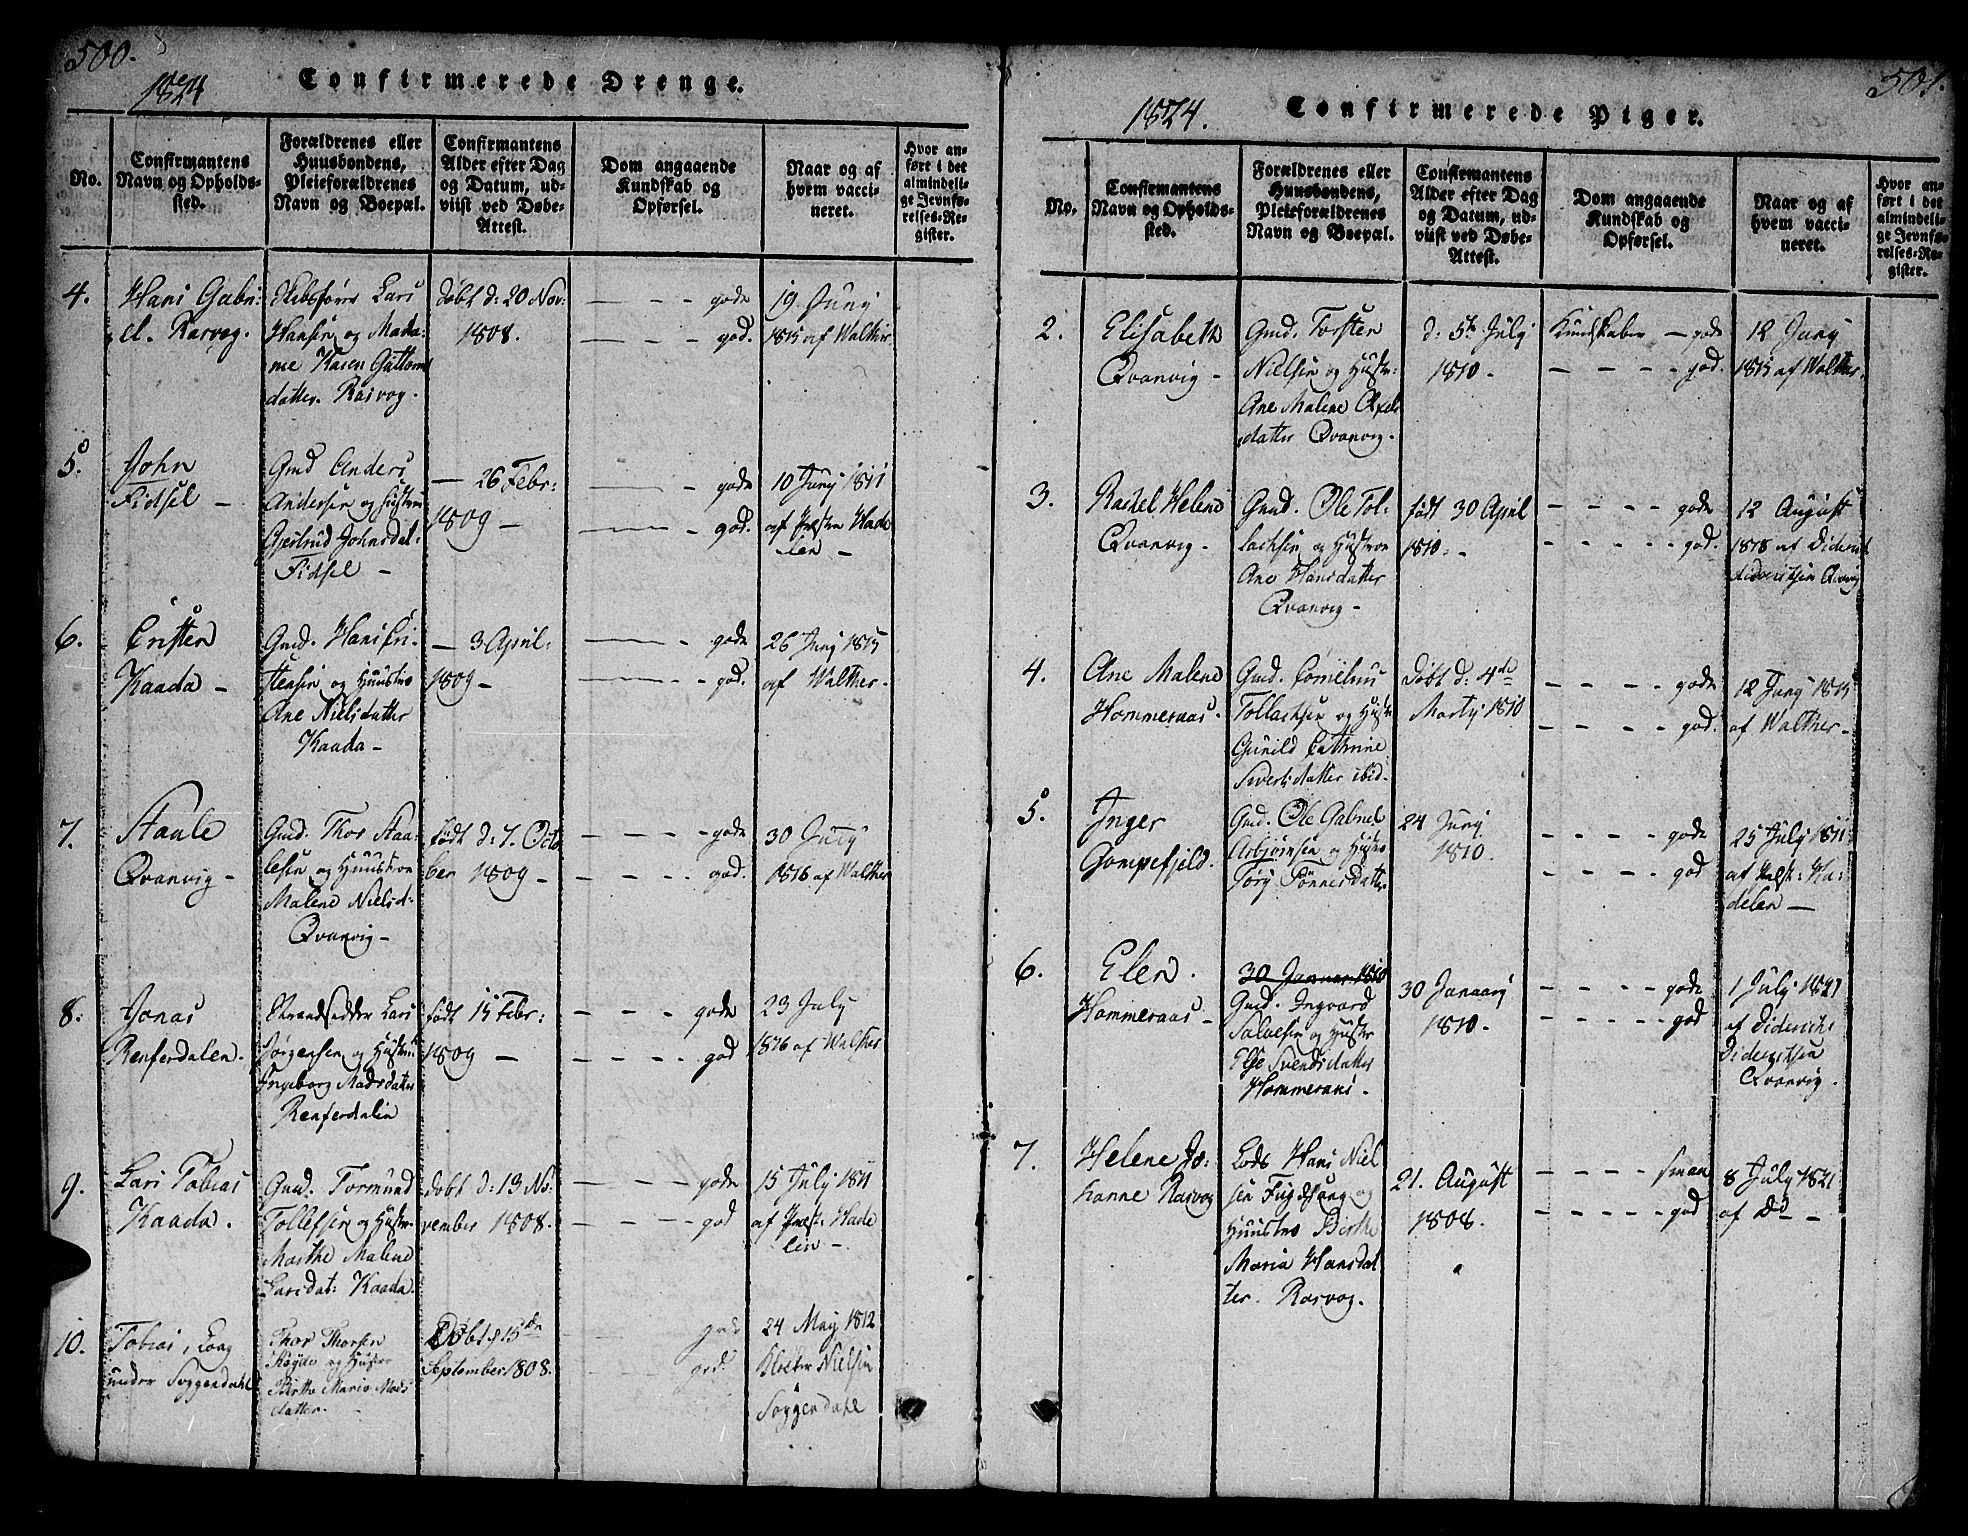 500.
1824
Confirmerede Drenge.
No.
Confirmantens
Navn og Opholds-
sted.
Forældrenes eller
Huusbondens,
Pleieforældrenes
Navn og Boepæl.
Confirmantens
Alder efter Dag
og Datum, ud-
viist ved Døbe-
Attest.
Dom angaaende
Kundskab og
Opførsel.
Naar og af
hvem vacci-
neret.
Hvor an-
ført i det
almindeli-
ge Jevnfø-
relses-Re-
gister.
4.
Hans Gabri-
el. Rasvog.
Skibsfører Lars
Hansen og Mada-
me Karen Guttorms
datter. Rasvog.
døbt d: 20 Nov:
1808.
— — — gode
— — — god.
19 Juny
1815 af Walther
5.
John
Fidsel —
Gmd Anders
Andersen og Hustru
Gjertrud Johnsdat:
Fidsel —
— 26 Febr:
1809 —
— gode
— god.
10 Juny 1811
af Præsten Hade
len —
6.
Cristen
Kaada —
Gmd. Hans Cri-
stensen og Huustro
Ane Nielsdatter
Kaada —
— 3 April:
1809 —
— gode
— god.
26 Juny 1815
af Walther —
7.
Staale
Qvanvig —
Gmd. Thor Staa-
lesen og Huustroe
Malene Nielsd:
Qvanvig —
født d: 7. Octo
ber 1809 —
— — — gode
— — — god.
30 Juny
1816 af Walther
8.
Jonas
Renferdalen.
Strandsidder Lars
Jørgensen og Hustru
Ingeborg Madsdatter
Renferdalen
født 15 Febr:
1809 —
— — — gode
— — — god
23 July
1816 af Walther
9.
Lars Tobias
Kaada.
Gmd. Tormund
Tollefsen og Hustr.
Marthe Malene
Larsdat: Kaada.
døbt d: 13 No-
vember 1808.
— — — gode
— — — god
15 July 1811
af Præst: Hade
len —
10.
Tobias, Loug
under Soggendahl
Thor Thorsen
og Hustru
Birthe Maria Mads
datter.
Døbt 15de
September 1808.
god
god.
24 May 1812
Nielsen
Soggendahl
501.
1824.
Confirmerede Piger.
No.
Confirmantens
Navn og Opholds-
sted.
Forældrenes eller
Huusbondens,
Pleieforældrenes
Navn og Boepæl.
Confirmantens
Alder efter Dag
og Datum, ud-
viist ved Døbe-
Attest.
Dom angaaende
Kundskab og
Opførsel.
Naar og af
hvem vacci-
neret.
Hvor an-
ført i det
almindeli-
ge Jevnfø-
relses-Re-
gister.
2.
Elisabeth
Qvanvig —
Gmd. Torsten
Nielsen og Hustr:
Ane Malene Axels
datter Qvanvig.
d: 5te July
1810 —
Kundskaber — gode
— — — — god.
12 Juny
1815 af Walther.
3.
Rachel Helene
Qvanvig —
Gmd. Ole Tol-
lachsen og Hustroe
Ane Hansdatter
Qvanvig —
født 30 April
1810. —
— — — — gode
— — — — god.
12 August
1818 af Diderik
Dideriksen Qvanvig
4.
Ane Malene
Hommeraas.
Gmd. Cornelius
Tollachsen og Hustr
Gunild Cathrine
Sivertsdatter ibid —
Døbt d: 4de
Marty 1810
— — — — gode
— — — — god.
12 Juny 1815
af Walther —
5.
Inger
Gompefjeld.
Gmd. Ole Gabriel
Asbjørnsen og Hustro
Torg. Tønnesdatter
24 Juny
1810.
— — — — gode
— — — — god
25 July 1811
af Præst: Ha:
delen —
6.
Elen.
Hommeraas —
30 Januar 1810
Gmd. Ingvard
Salvesen og Hustr
Else Svendsdatter
Hommeraas.
30 Januarj
1810 —
— — — — gode
— — — — god
1 July 1821
af Diderich
Dideritsen
Qvanvig.
7.
Helene Jo-
hanne Rasvog
Lods Hans Niel
sen og
Huustro Birthe
Maria Hansdat
ter. Rasvog.
21. August
1808.
— — — — smaa
— — — — god
8 July 1821
af Do —